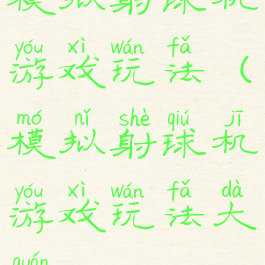 模拟射球机
yóu xì wán fǎ
游戏玩法（
mó nǐ shè qiú jī
模拟射球机
yóu xì wán fǎ dà
游戏玩法大
quán